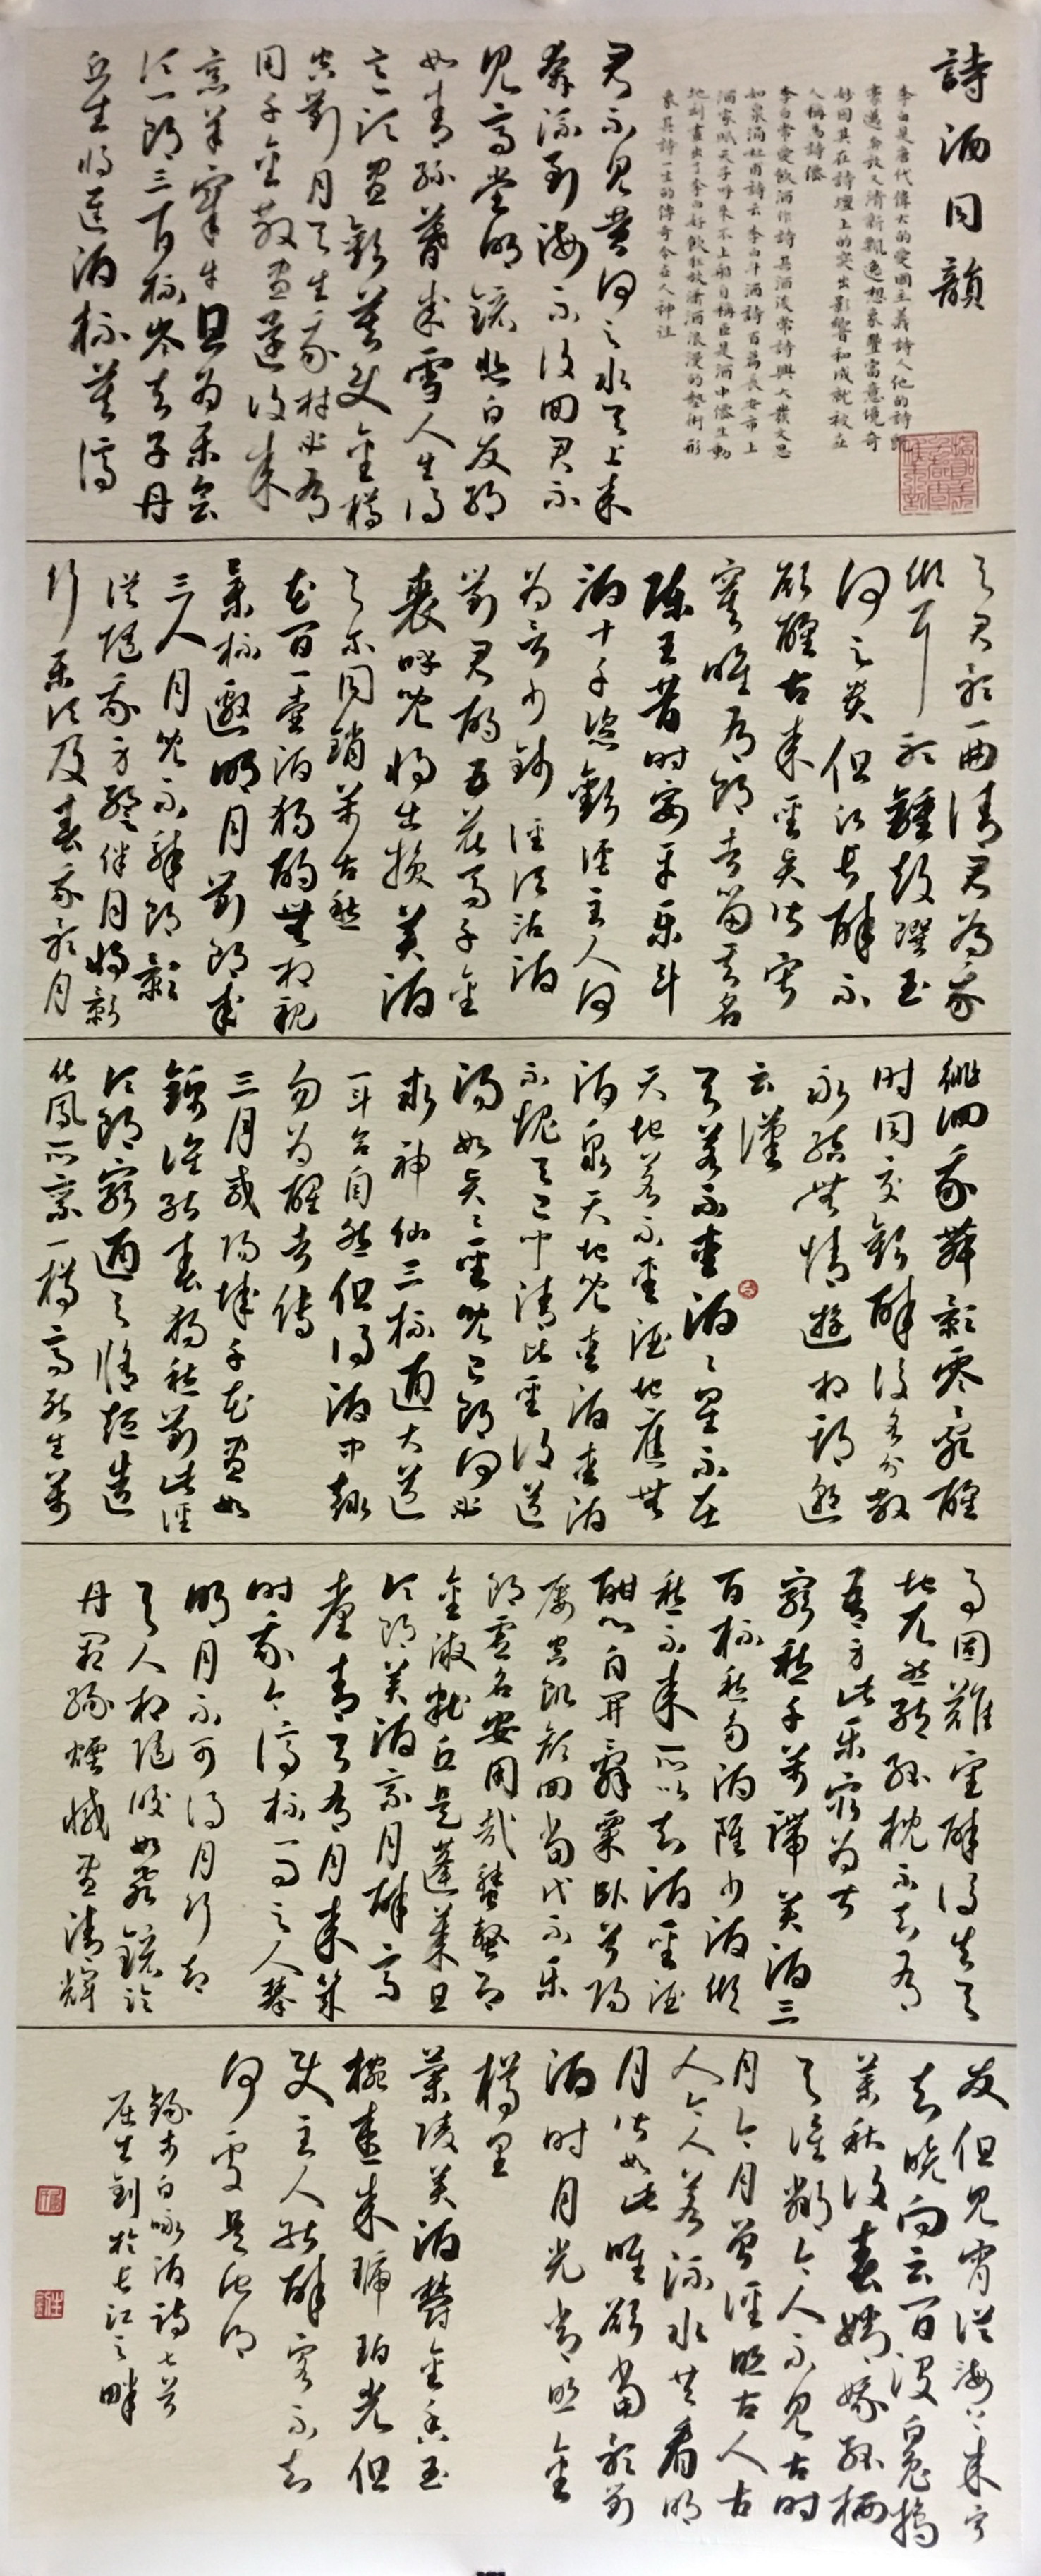 詩酒同韻
李白是唐代偉大的愛國主義詩人他的詩歌
豪邁奔放又清新飄逸想象豐富意境奇
妙因其在詩壇上的突出影響和成就被后
人稱爲詩僊
李白常愛飲酒作詩其酒後常詩興大發文思
如泉涌杜甫詩云李白斗酒詩百篇長安市上
酒家眠天子呼來不上船自稱臣是酒中僊生動
地刻畫出了李白好飲狂放瀟洒浪漫的藝術形
象其詩一生的傳奇令后人神往
君不見黃河之水天上來
奔流到海不復回君不
見高堂明鏡悲白发朝
如青絲暮成雪人生得
意須盡歡莫使金樽
空對月天生我材必有
用千金散盡還復來
烹羊宰牛且爲樂會
須一飲三百杯岑夫子丹
丘生將進酒杯莫停
與君歌一曲請君爲我
傾耳聽鐘鼓饌玉
何足貴但願長醉不
願醒古來聖賢皆寂
寞唯有飲者留其名
陳王昔時宴平樂斗
酒十千恣歡謔主人何
爲言少錢徑須沽酒
對君酌五花馬千金
裘呼兒將出換美酒
與尔同銷萬古愁
花間一壺酒獨酌無相親
舉杯邀明月對影成
三人月既不解飲影
徒隨我身暫伴月將影
行樂須及春我歌月
徘徊我舞影零亂醒
時同交歡醉後各分散
永結無情遊相期邈
云漢
天若不愛酒酒星不在
天地若不愛酒地應無
酒泉天地既愛酒愛酒
不愧天已聞清比聖復道
濁如賢賢聖既已飲何必
求神仙三杯通大道
一斗合自然但得酒中趣
勿爲醒者傳
三月咸陽城千花晝如
錦誰能春獨愁對此徑
須飲窮通與脩短造
化夙所稟一樽齊死生萬
事固難審醉後失天
地兀然就孤枕不知有
吾身此樂最爲甚
窮愁千萬端美酒三
百杯愁多酒雖少酒傾
愁不來所以知酒聖酒
酣心自開辭粟卧首陽
屢空飢顏回當代不樂
飲虛名安用哉蟹螯即
金液糟丘是蓬萊且
須飲美酒乘月醉高
臺青天有月來幾
時我今停杯一問之人攀
明月不可得月行却
與人相隨皎如飛鏡臨
丹闕綠煙滅盡清輝
发但見宵從海上來寧
知曉向云間沒白兔搗
藥秋復春嫦娥孤栖
與誰鄰今人不見古時
月今月曾經照古人古
人今人若流水共看明
月皆如此唯願當歌對
酒時月光常照金
樽里
蘭陵美酒鬱金香玉
椀盛來琥珀光但
使主人能醉客不知
何處是他鄉
錄李白咏酒詩七首
於長江之畔